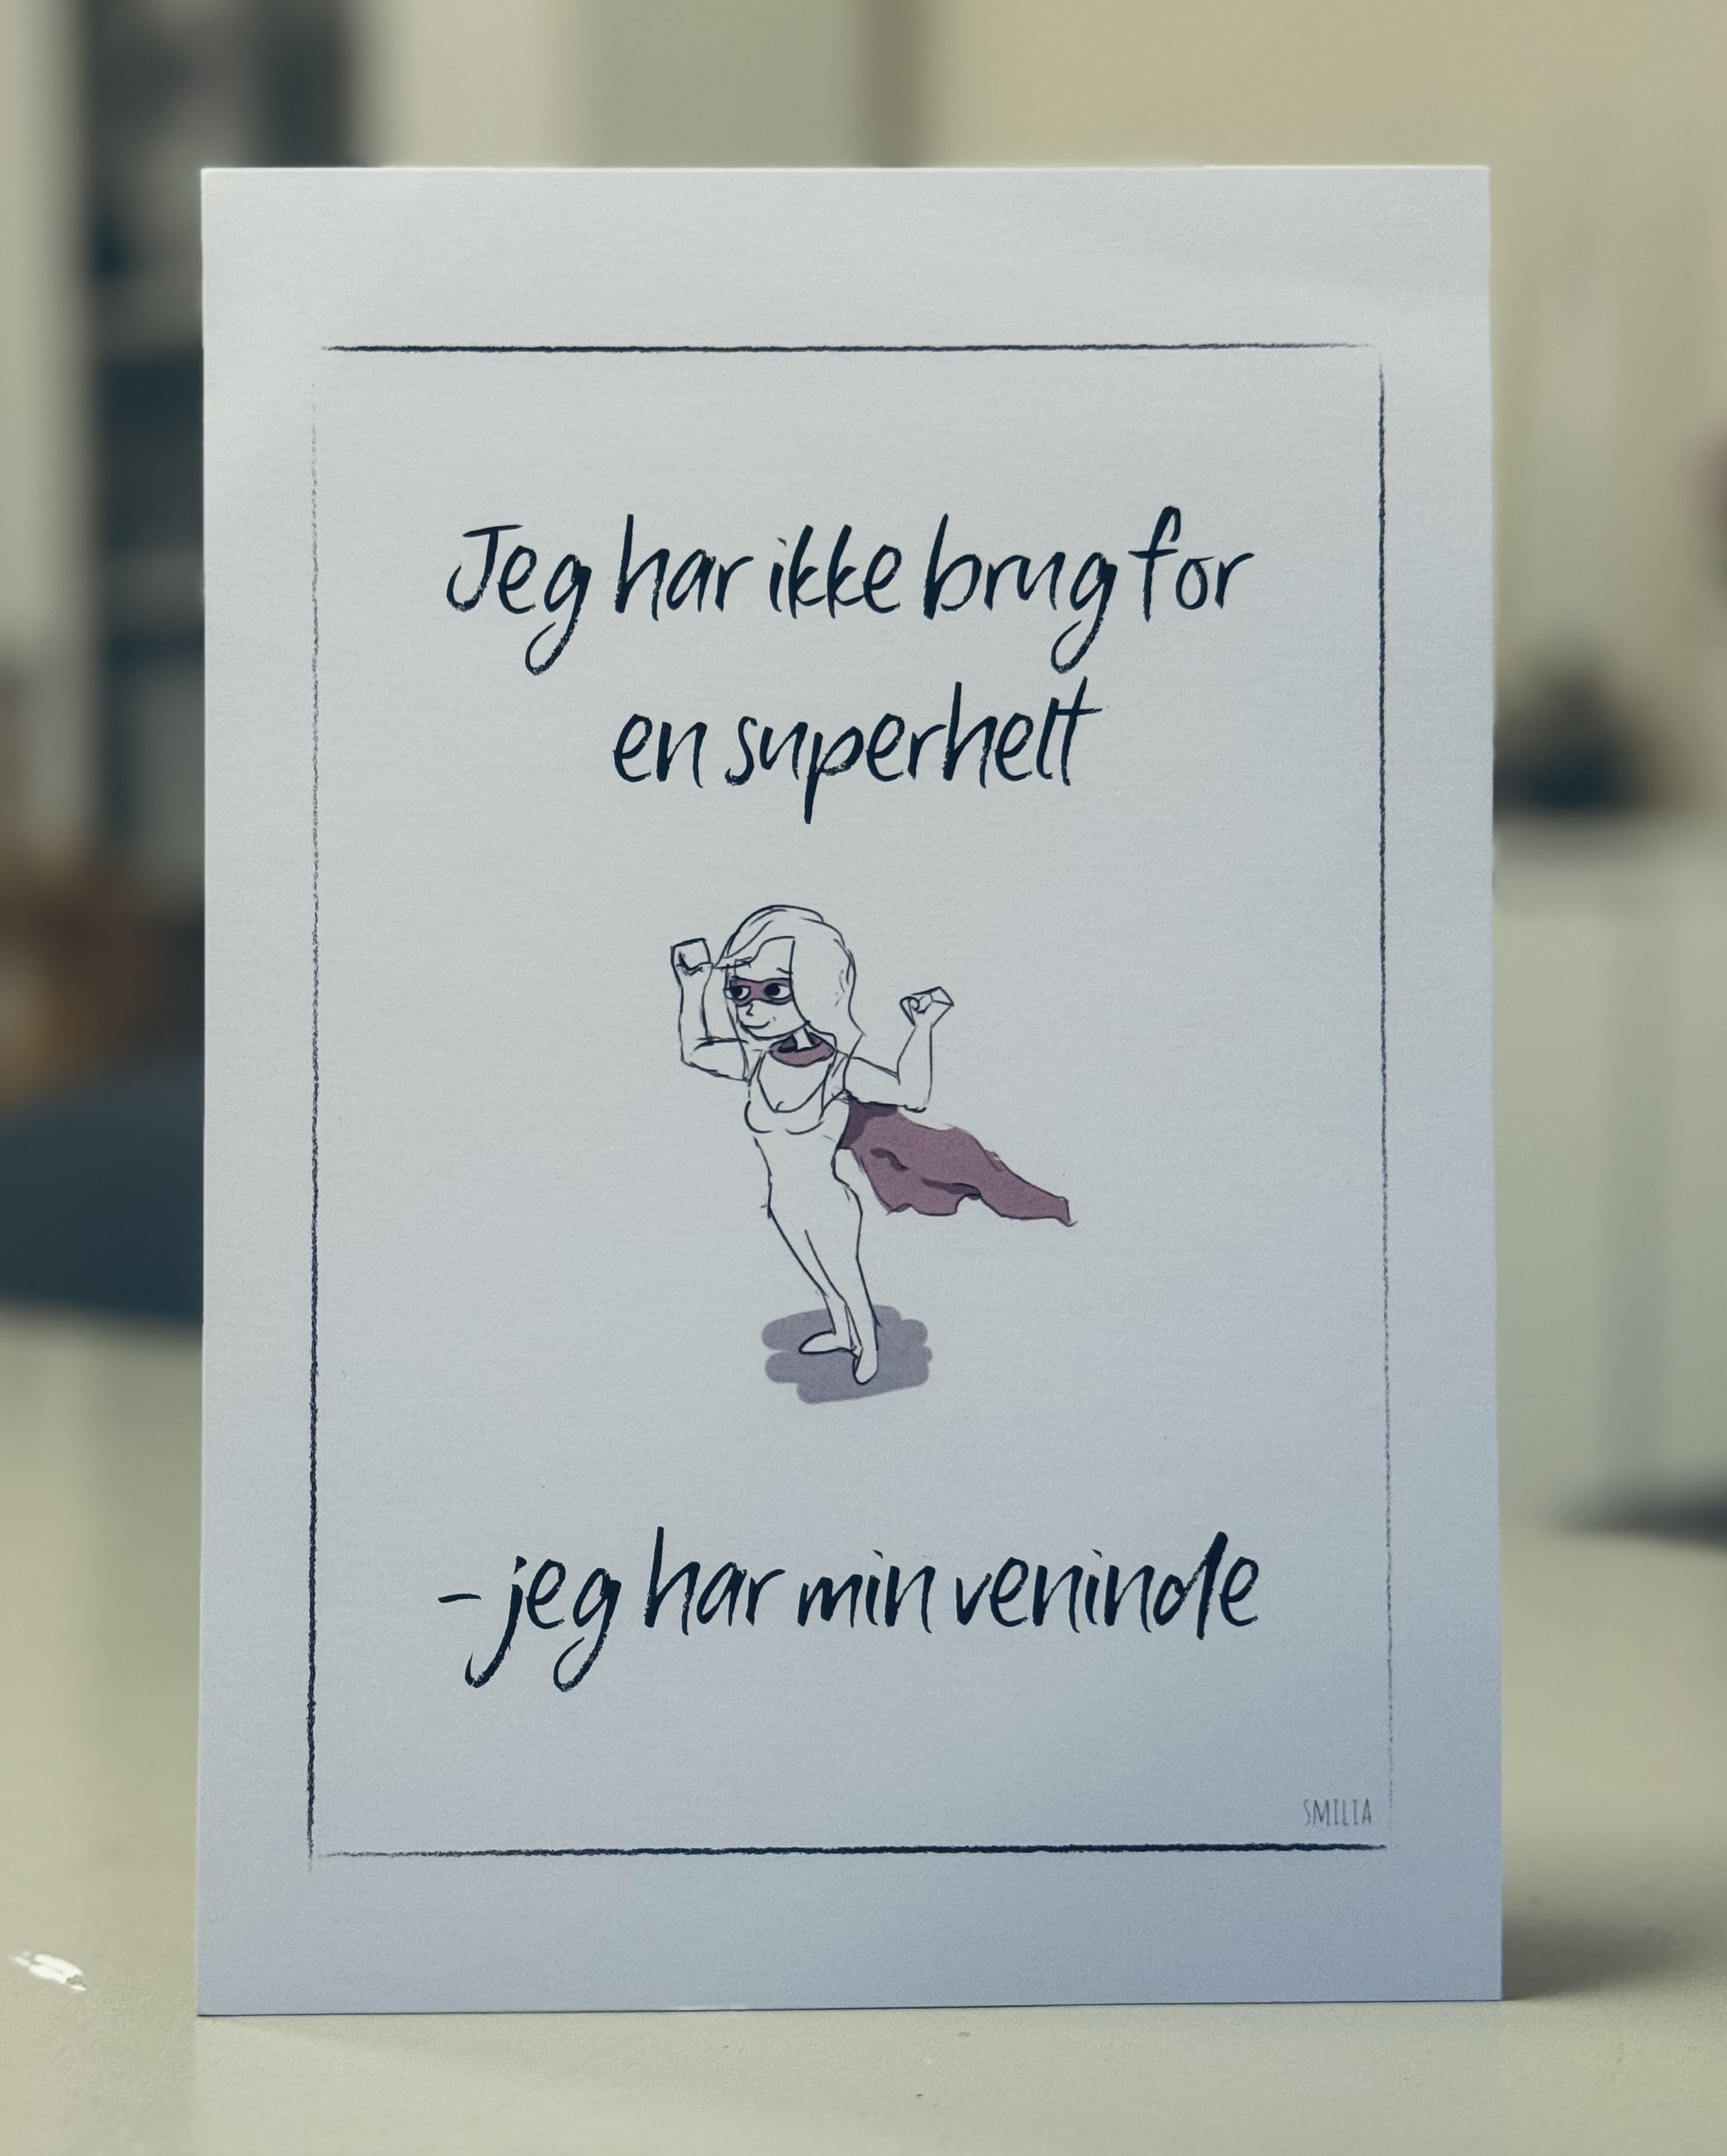 Jeg har ikke brug for
en superhelt
- jeg har min veninde
SMILIA